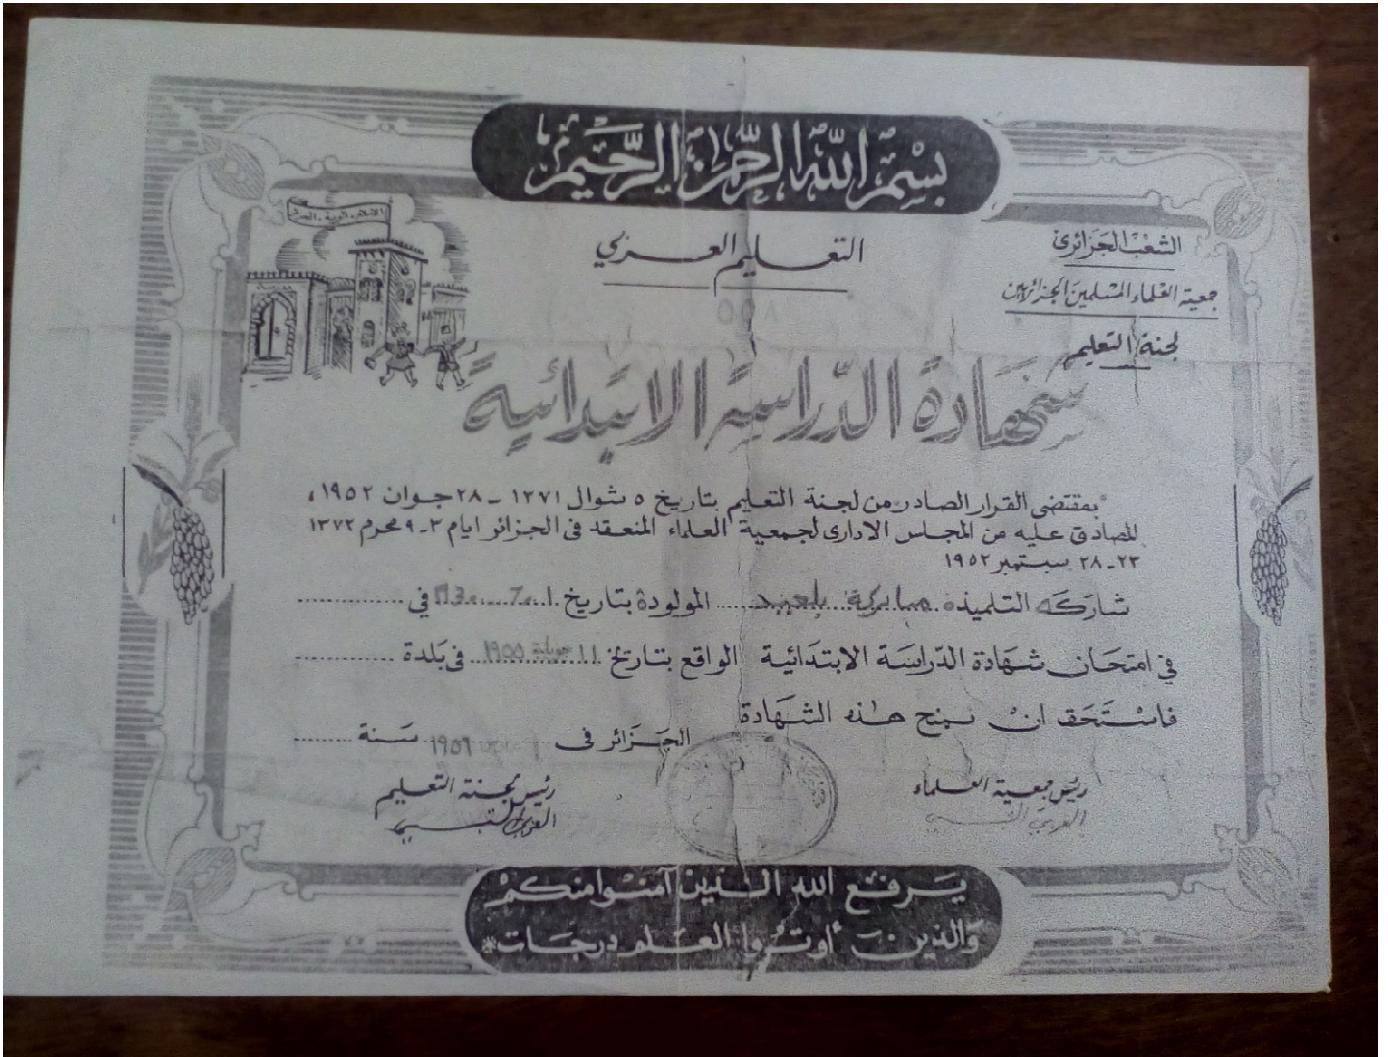 بسم الله الرحمن الرحيم
الشعب الجزائري
جمعية العلماء المسلمين الجزائريين
لجنة التعليم
التعليم العربي
شهادة الدراسة الابتدائية
بمقتضى القرار الصادر من لجنة التعليم بتاريخ ٥ شوال ١٣٧١ - ٢٨ جوان ١٩٥٢،
للصادق عليه من المجلس الادارى لجمعية العلماء المنعقد فى الجزائر ايام ٣-٩ محرم ١٣٧٢
٢٣-٢٨ سبتمبر ١٩٥٢
شاركه التلميذة مباركة بلعيد المولودة بتاريخ في
في امتحان شهادة الدراسة الابتدائية الواقع بتاريخ ١١ جويلية ١٩٥٥ فى بلدة
فاستحق ان يمنح هذه الشهادة
الجزائر فى ١٩٥٦ سنة
رئيس جمعية العلماء
العربي التبسي
رئيس لجنة التعليم
العربي التبسي
يرفع الله الذين آمنوا منكم
والذين أوتوا العلم درجات